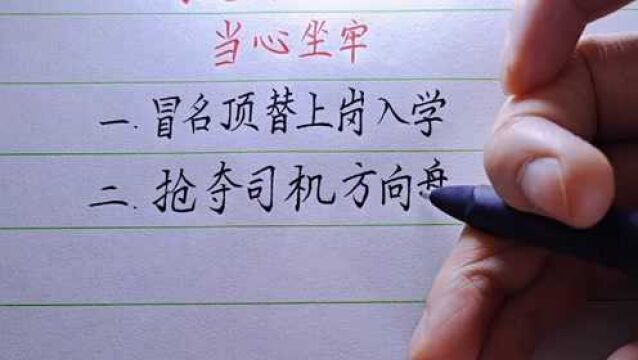 当心坐牢
一.冒名顶替上岗入学
二.抢夺司机方向盘